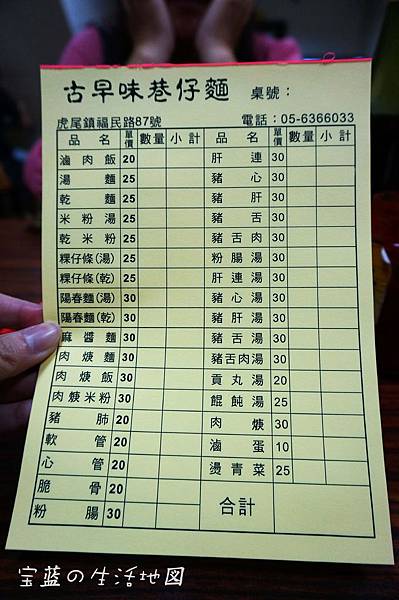 古早味巷仔麵 桌號：
虎尾鎮福民路87號 電話：05-6366033
品名 單價 數量 小計 品名 單價 數量 小計
滷肉飯 20 肝連 30
湯麵 25 豬心 30
乾麵 25 豬肝 30
米粉湯 25 豬舌 30
乾米粉 25 豬舌肉 30
粿仔條(湯) 25 粉腸湯 30
粿仔條(乾) 25 肝連湯 30
陽春麵(湯) 30 豬心湯 30
陽春麵(乾) 30 豬肝湯 30
麻醬麵 30 豬舌湯 30
肉焿麵 30 豬舌肉湯 30
肉焿飯 30 貢丸湯 20
肉焿米粉 30 餛飩湯 25
豬肺 20 肉焿 30
軟管 20 滷蛋 10
心管 20 燙青菜 25
脆骨 20 合計
粉腸 30
宝蓝の生活地図